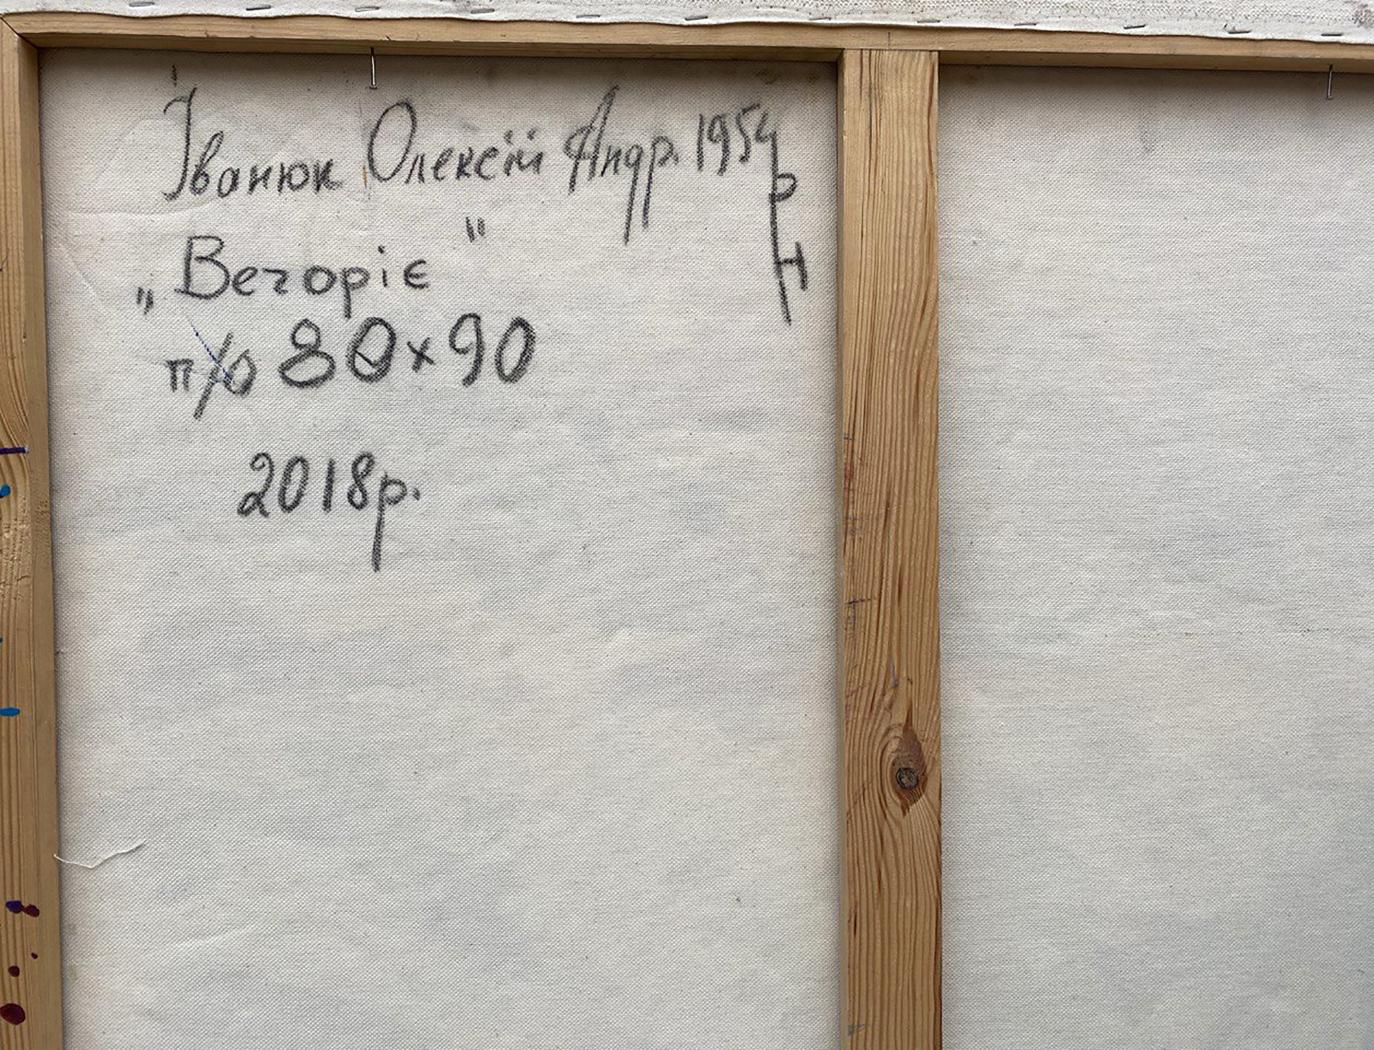 Іванюк Олексій Андр. 1954 р н
„Вечоріє"
п/о 80х90
2018р.